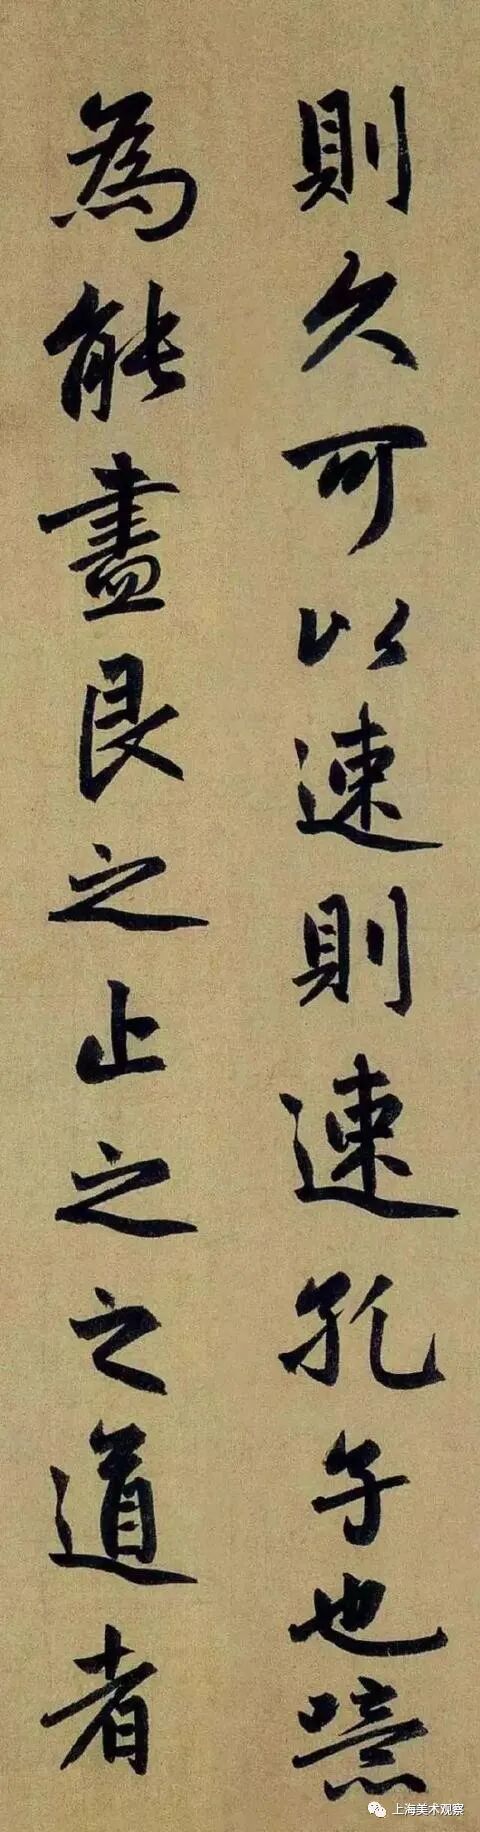 則久可以速則速孔子也噫
為能盡艮之止之之道者
上海美术观察